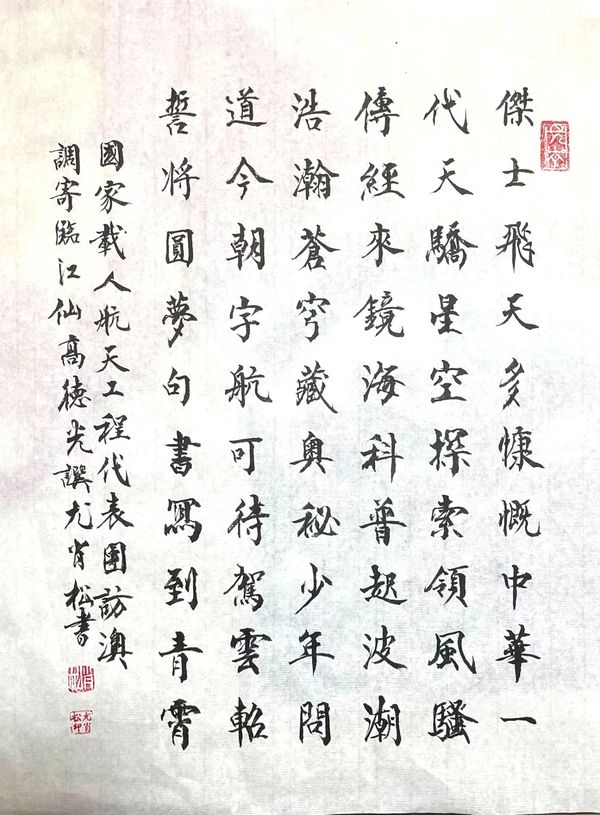 傑士飛天多慷慨中華一
代天驕星空探索領風騷
傳經來鏡海科普起波潮
浩瀚蒼穹藏奧秘少年問
道今朝字航可待駕雲軺
誓將圓夢句書寫到青霄
國家載人航天工程代表團訪澳
調寄臨江仙高德光譔尤肖松書